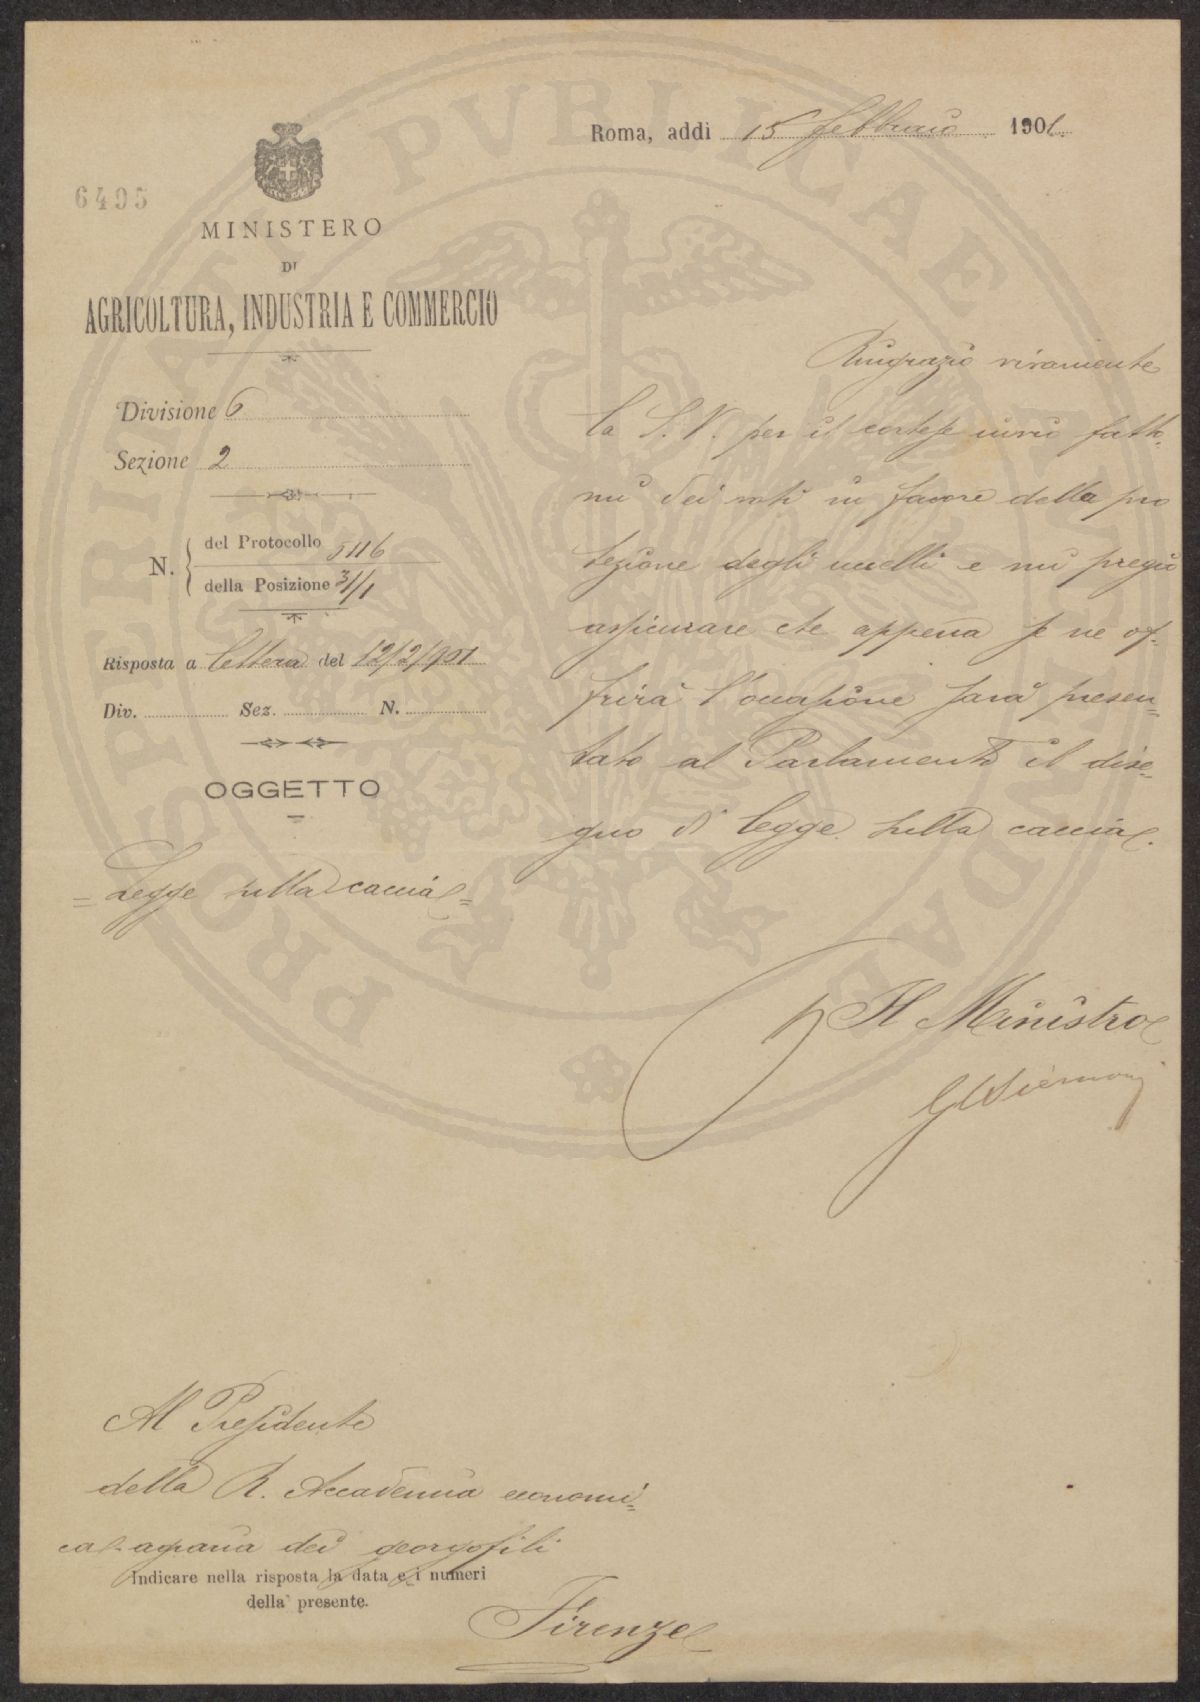 Roma, addì 15 febbraio 1901.
6495
MINISTERO
DI
AGRICOLTURA, INDUSTRIA E COMMERCIO
Divisione 6
Sezione 2
N. del Protocollo 5116
della Posizione 3/1
Risposta a lettera del 12/2/901
Div. Sez. N.
OGGETTO
= Legge sulla caccia =
Ringrazio vivamente
la S. V. per il cortese invio fatto-
mi dei voti in favore della pro
tezione degli uccelli e mi pregio
assicurare che appena se ne of-
frirà l'occasione sarà presen=
tato al Parlamento il dise=
gno di legge sulla caccia.
Il Ministro
Al Presidente
della R. Accademia economi=
ca-agraria dei georgofili
Indicare nella risposta la data e i numeri
della presente.
Firenze
PROSPERITAS PVBLICAE